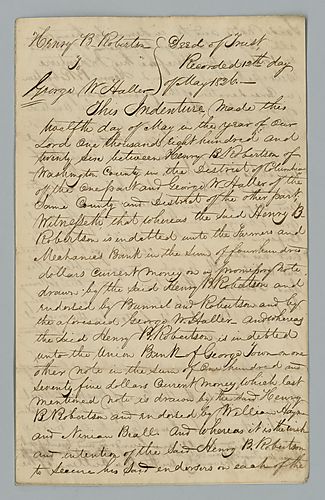 Henry B. Robertson } Deed of Trust
To } Recorded 12th day
George W. Haller } of May 1826.—
This Indenture, Made this
twelfth day of May in the year of our
Lord One thousand eight hundred and
twenty six between Henry B. Robertson of
Washington County in the District of Columbia
of the One part and George W. Haller of the
Same County and District of the other part
Witnesseth that whereas the Said Henry B.
Robertson is indebted unto the Farmers and
Mechanics Bank in the Sum of four hundred
dollars Current Money on a promissory Note
drawn by the Said Henry B. Robertson and
endorsed by and Robertson and by
the aforesaid George W. Haller— And whereas
the Said Henry B. Robertson is indebted
unto the Union Bank of George Town on one
other note in the Sum of One hundred and
Seventy five dollars Current Money which last
mentioned note is drawn by the Said Henry
B. Robertson and endorsed by William
and Ninian Beall. And whereas it is the wish
and intention of the Said Henry B. Robertson
to Secure his Said endorsers on each of the